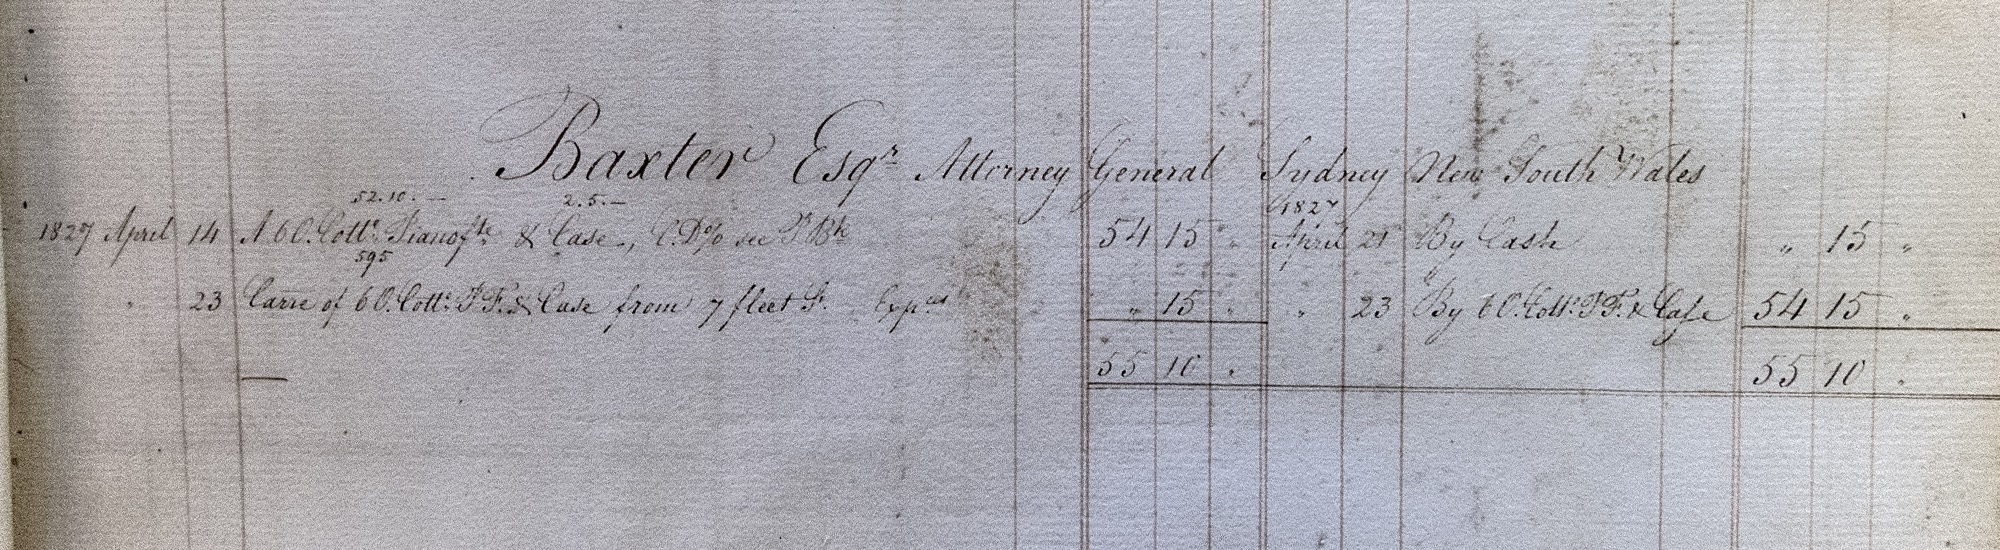 Baxter Esqr Attorney General Sydney New South Wales
52.10.— 2.5.— 1827
1827 April 14 A 6 O. Cotte Pianofte & Case, C. D% see P Bk 54 15 " April 21 By Cash " 15 "
595
" 23 Carre of 6 O. Cotte P F. & Case from 7 fleet St. Expces " 15 " " 23 By 6 O. Cotte P F. & Case 54 15 "
55 10 " 55 10 "